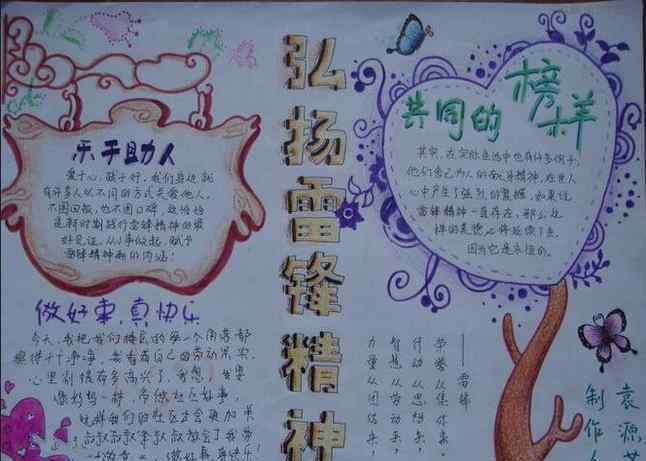 乐于助人
爱于心，践于行，我们身边就
有许多人以不同的方式关爱他人，
不图回报，也不图口碑，这恰恰
是新时期践行雷锋精神的最
好见证，从小事做起，赋予
雷锋精神新的内涵！
做好事，真快乐
今天，我把我们楼层的每一个角落都
擦得干干净净，我看着自己的劳动果实，
心里别提有多高兴了，我想！我要
像妈妈一样，常做社区好事，
这样我们的社区才会更加美
弘扬雷锋精神
共同的榜样
其实，在实际生活中也有许多例子，
他们舍己为人的
心中产生了强烈的震撼，如果说
雷锋精神一直存在，那么这
样的美德也将延续下去，
因为它是永恒的。
——雷锋
荣誉从集体来，
行动从思想来，
智慧从劳动来，
力量从团结来，
制作人
袁源